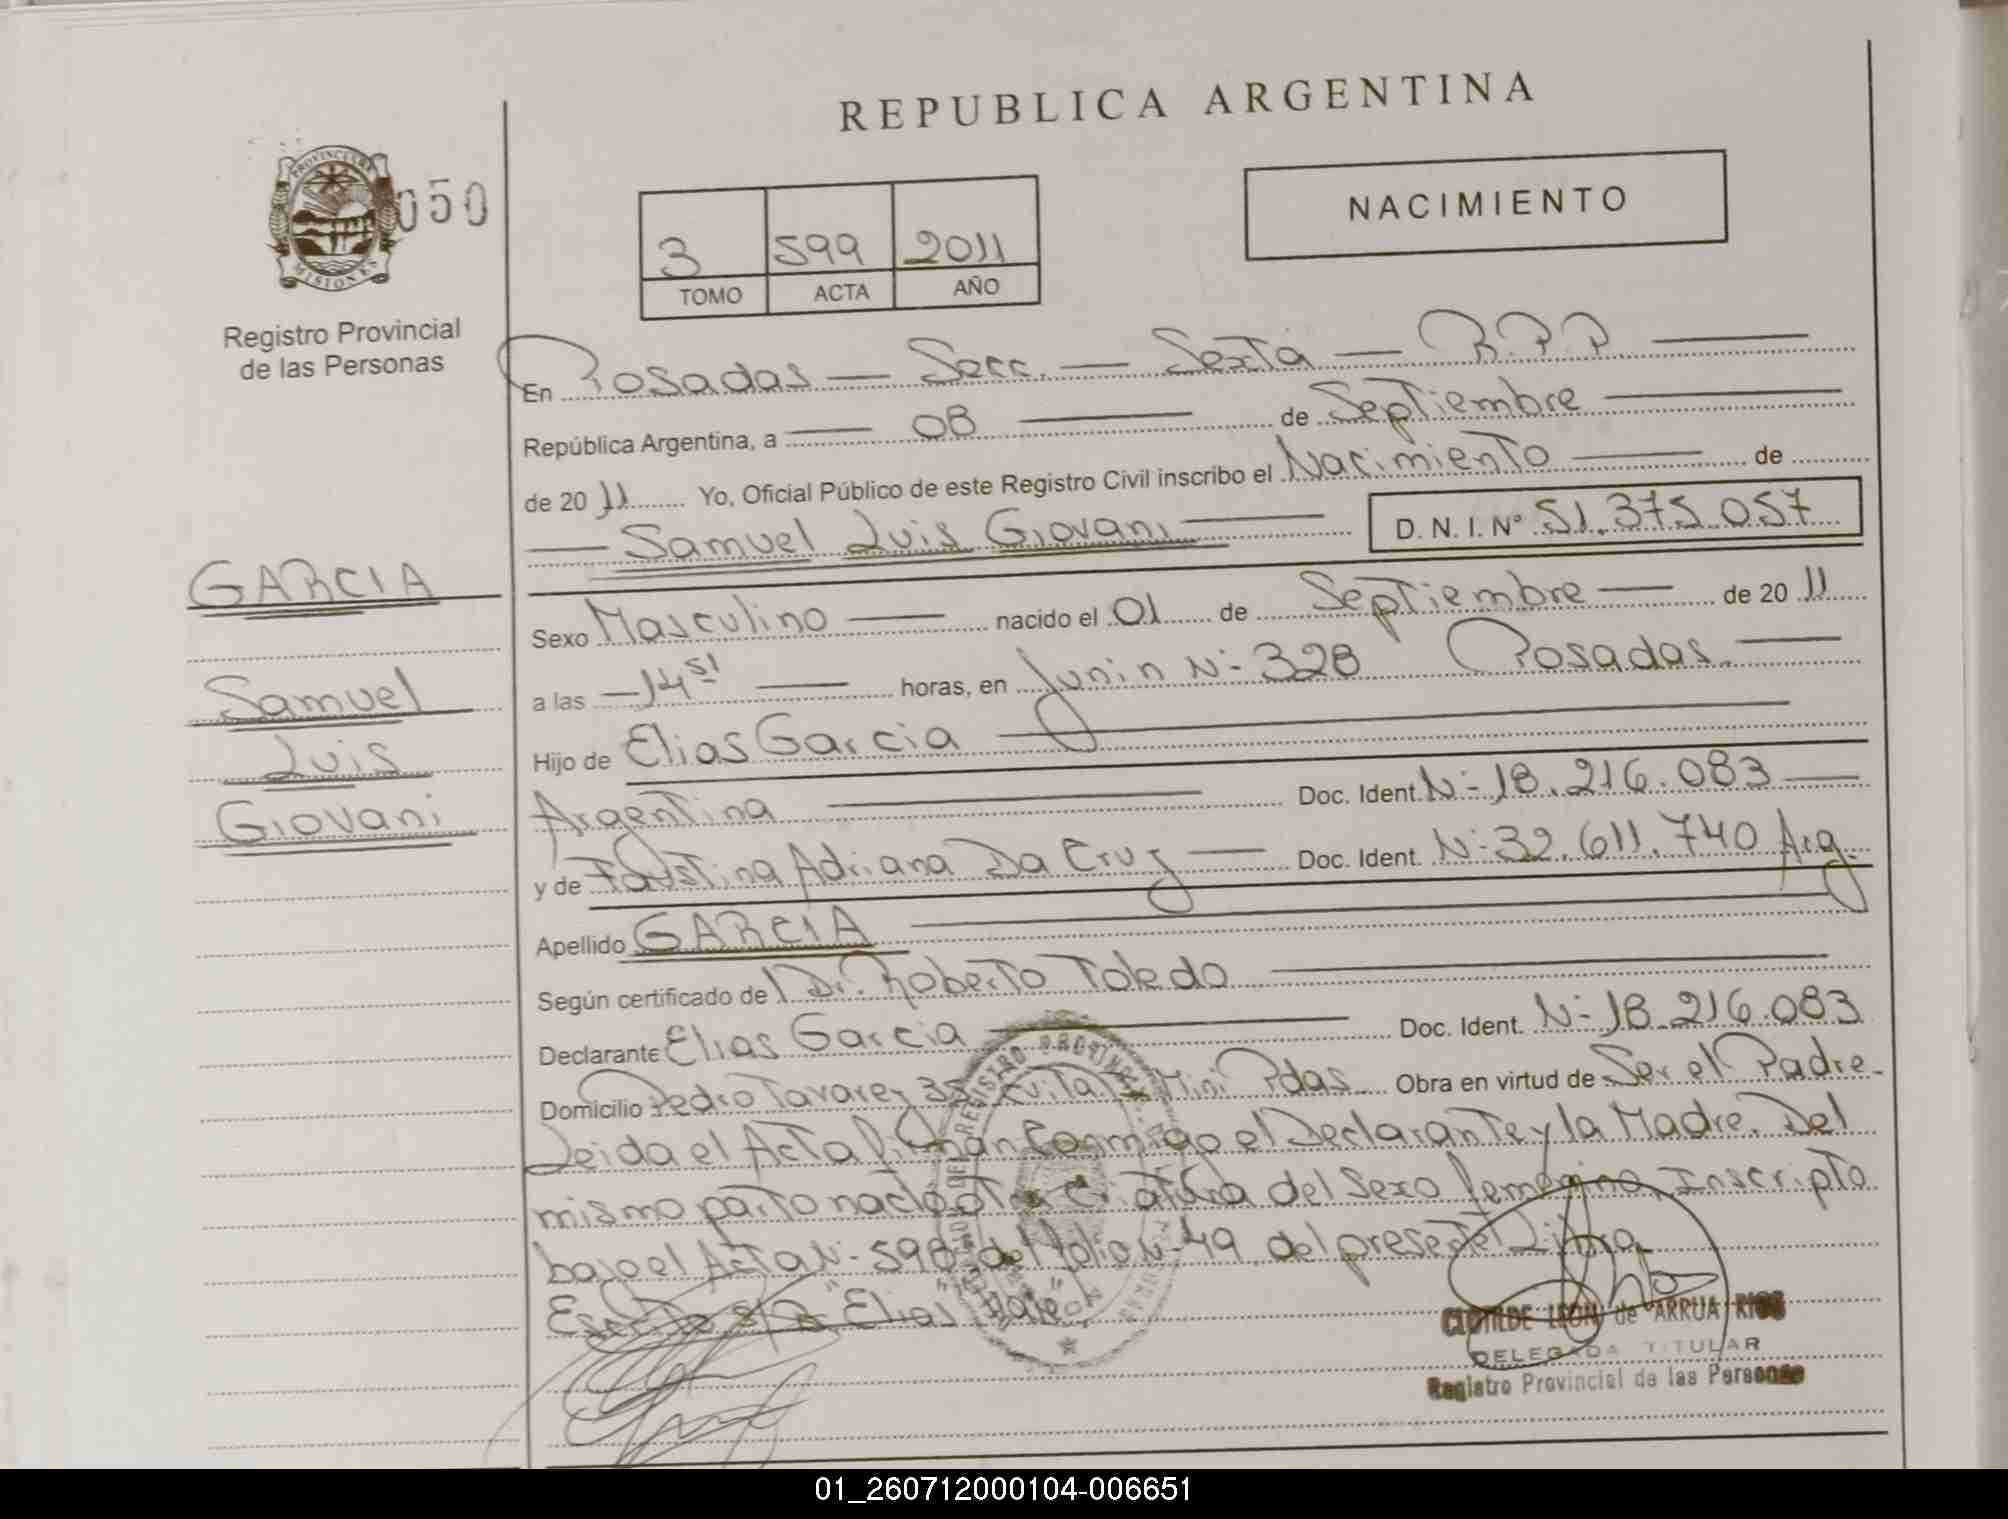 REPUBLICA ARGENTINA
PROVINCIA DE
MISIONES
050
Registro Provincial
de las Personas
3 599 2011
TOMO ACTA AÑO
NACIMIENTO
En Posadas — Secc. — Sexta — R.P.P.
República Argentina, a 08 de Septiembre
de 2011 Yo, Oficial Público de este Registro Civil inscribo el Nacimiento de
Samuel Luis Giovani D. N. I. Nº 51.375.057
GARCIA
Samuel
Luis
Giovani
Sexo Masculino nacido el 01 de Septiembre de 2011
a las 14 51 horas, en Junin Nº 328 Posadas
Hijo de Elias Garcia
Argentina Doc. Ident. Nº 18.216.083
y de Faustina Adriana Da Cruz Doc. Ident. Nº 32.611.740 Arg.
Apellido GARCIA
Según certificado del Dr. Roberto Toledo
Declarante Elias Garcia Doc. Ident. Nº 18.216.083
Domicilio Pedro Tavarez 35 Evita Mini Pdas Obra en virtud de Ser el Padre
Leida el Acta firman Conmigo el Declarante y la Madre. Del
mismo parto nacio otra Criatura del Sexo femenino, Inscripto
bajo el Acta Nº 598, del folio Nº 49, del presente Libro
Escrito s/R "Elias" "Vale"
CLOTILDE LEON de ARRUA RIOS
DELEGADA TITULAR
Registro Provincial de las Personas
01_260712000104-006651